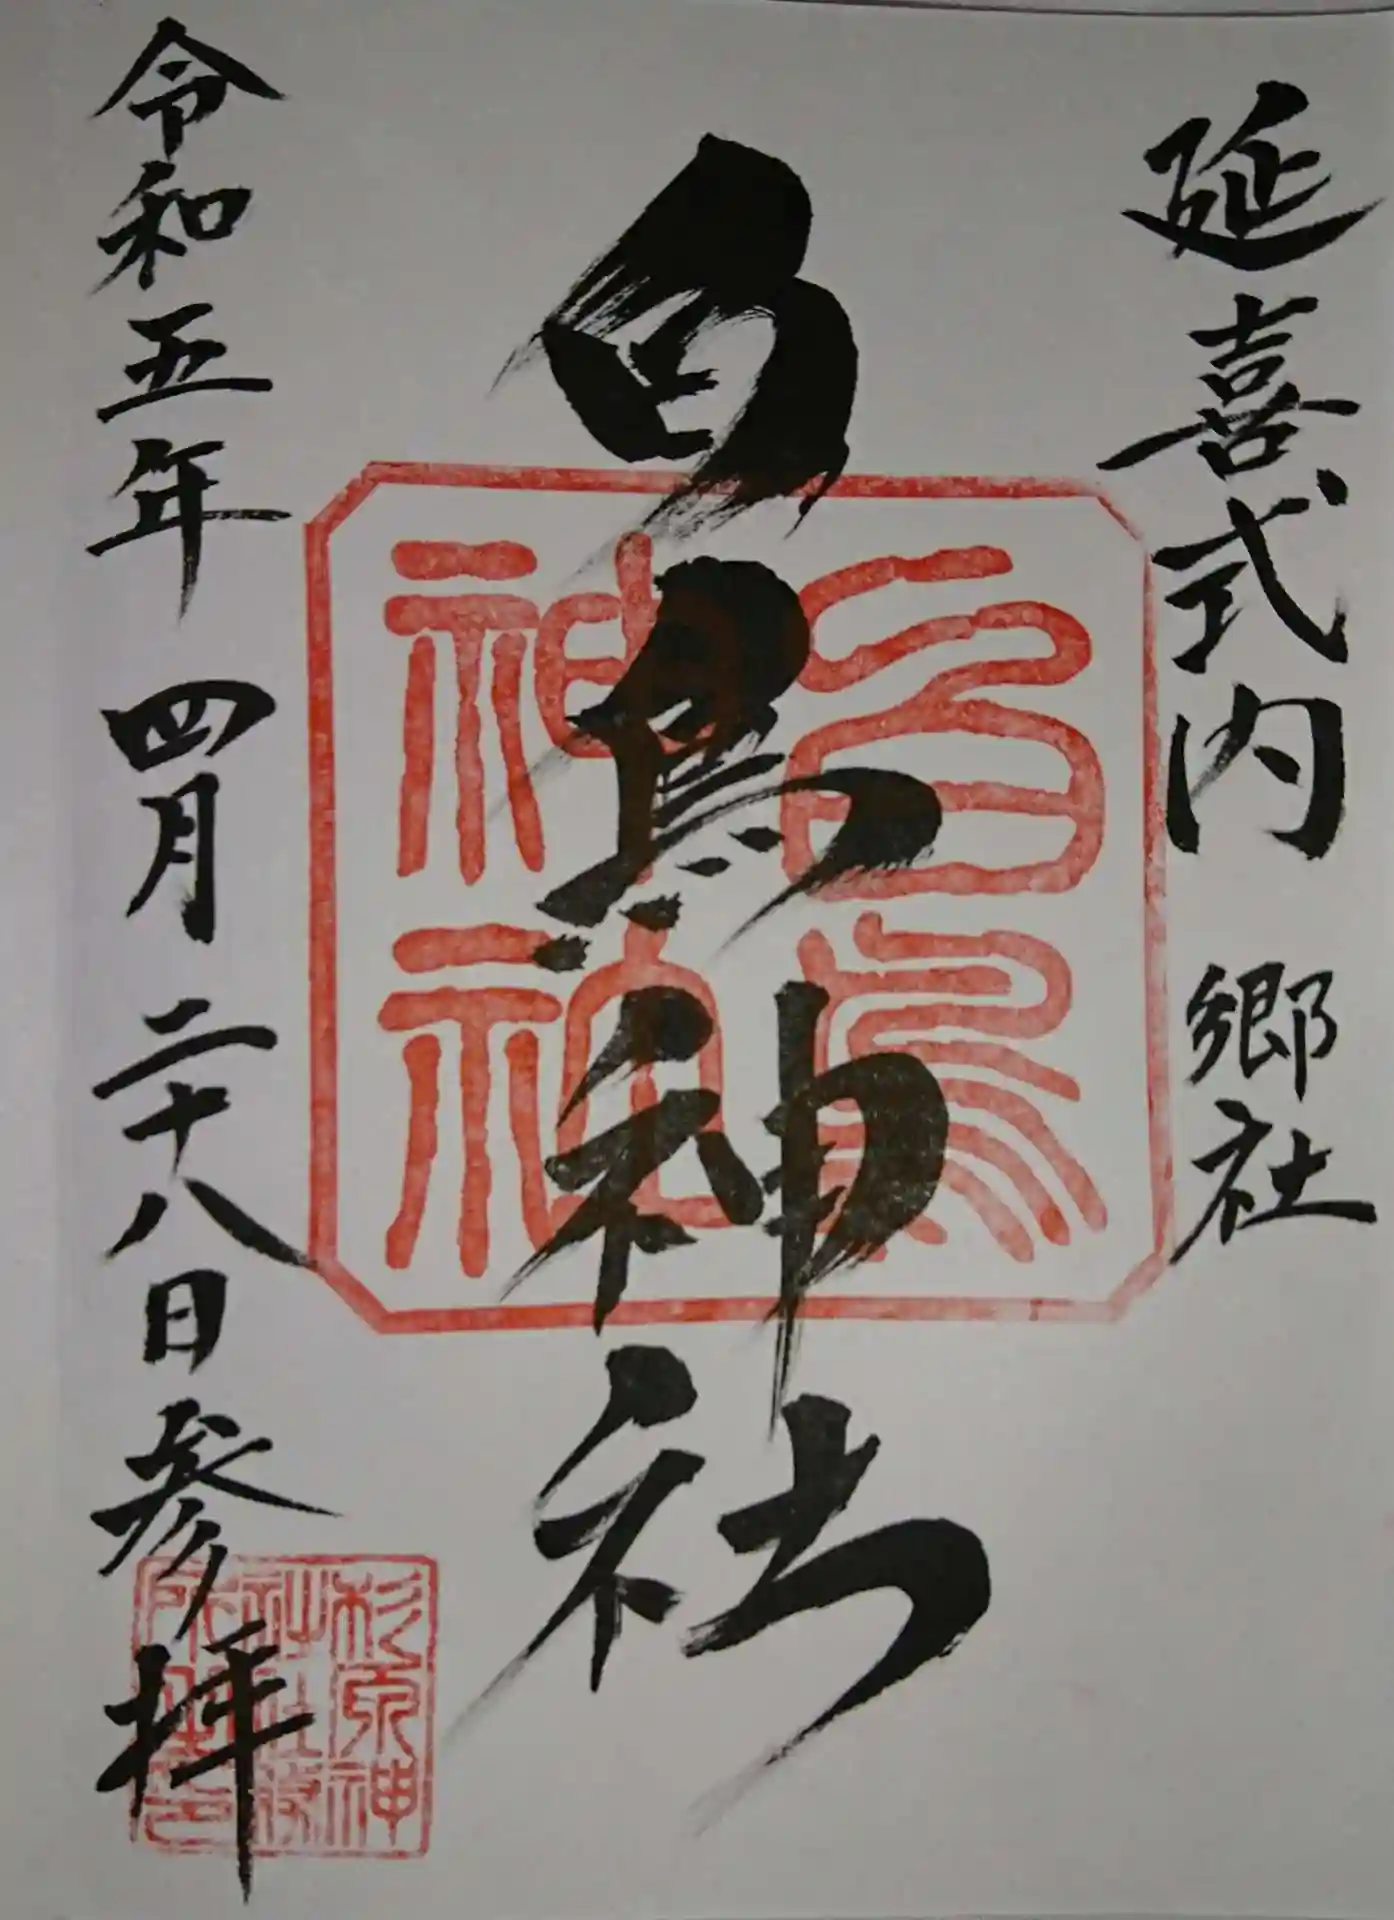 延喜式内 郷社
白鳥神社
白鳥
神社
令和五年 四月 二十八日参拝
杉原神
社社務
所之印